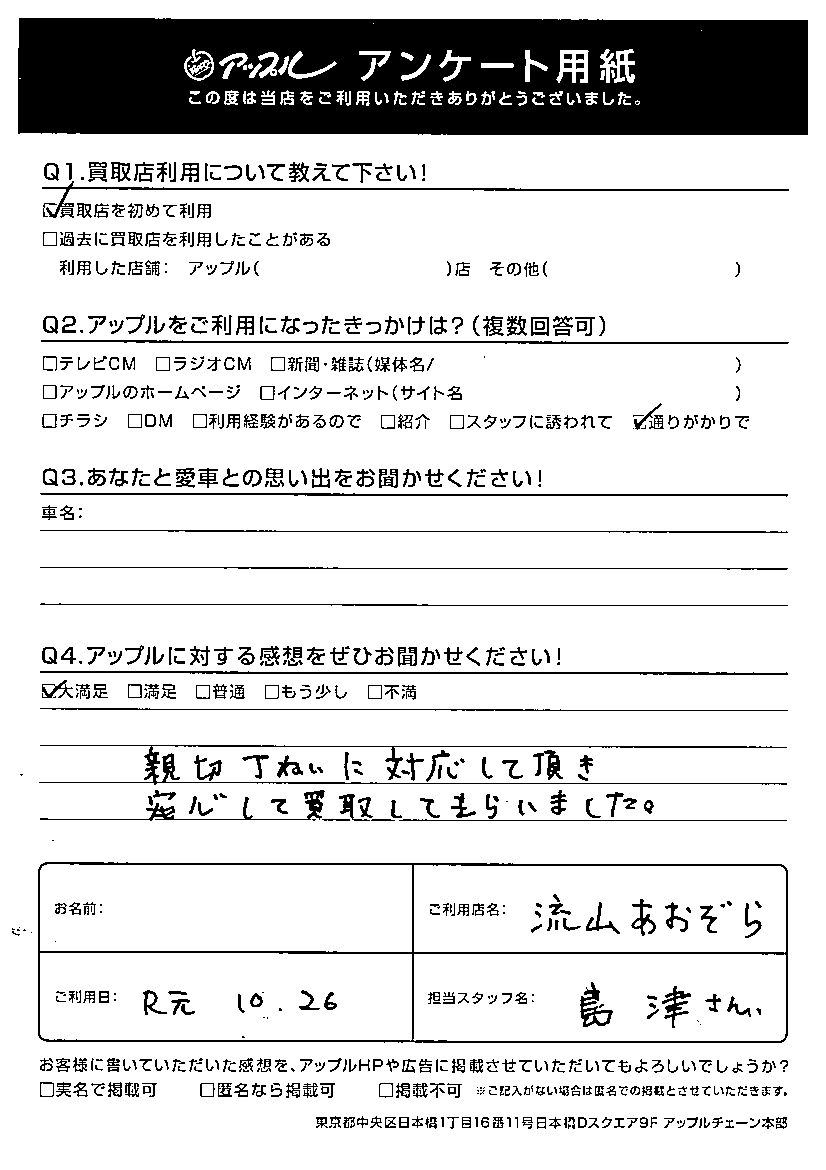 アップル アンケート用紙
この度は当店をご利用いただきありがとうございました。
Q1.買取店利用について教えて下さい!
☑買取店を初めて利用
□過去に買取店を利用したことがある
利用した店舗: アップル( )店 その他( )
Q2.アップルをご利用になったきっかけは?(複数回答可)
□テレビCM □ラジオCM □新聞・雑誌(媒体名/ )
□アップルのホームページ □インターネット(サイト名 )
□チラシ □DM □利用経験があるので □紹介 □スタッフに誘われて ☑通りがかりで
Q3.あなたと愛車との思い出をお聞かせください!
車名:
Q4.アップルに対する感想をぜひお聞かせください!
☑大満足 □満足 □普通 □もう少し □不満
親切丁ねいに対応して頂き
安心して買取してもらいました。
お名前:
ご利用店名: 流山あおぞら
ご利用日: R元 10.26
担当スタッフ名: 島津さん
お客様に書いていただいた感想を、アップルHPや広告に掲載させていただいてもよろしいでしょうか?
□実名で掲載可 □匿名なら掲載可 □掲載不可 ※ご記入がない場合は匿名での掲載とさせていただきます。
東京都中央区日本橋1丁目16番11号日本橋Dスクエア9F アップルチェーン本部